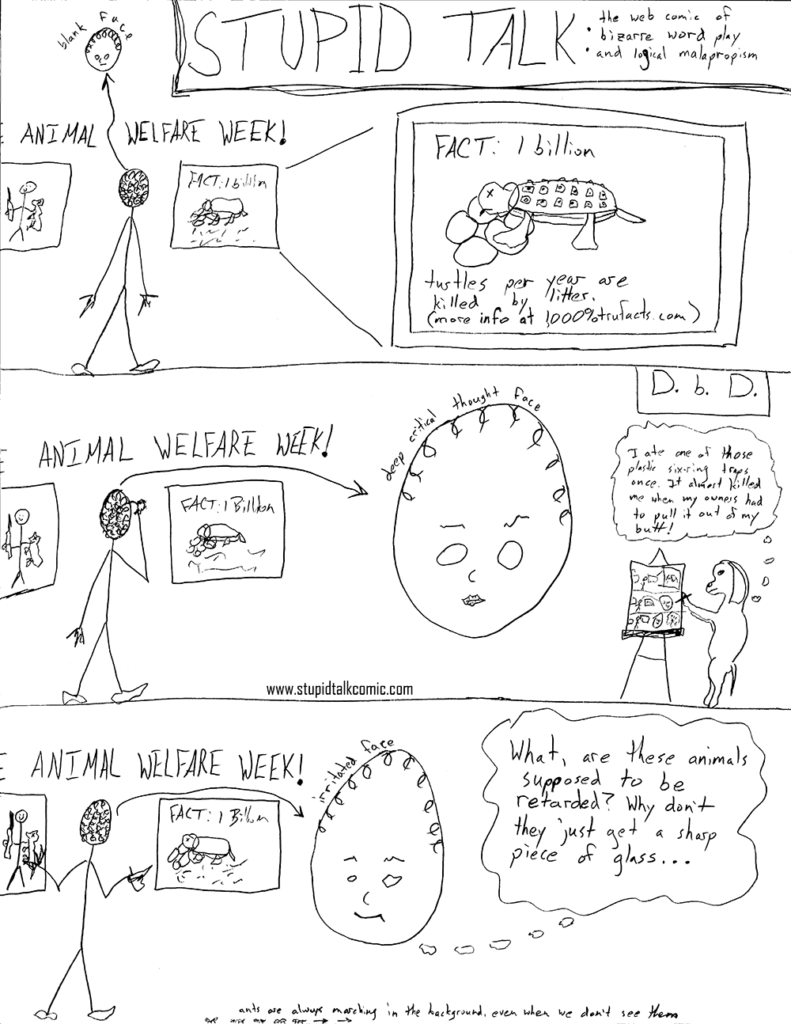 blank face
STUPID TALK
the web comic of
• bizarre word play
• and logical malapropism
E ANIMAL WELFARE WEEK!
FACT: 1 billion
FACT: 1 billion
turtles per year are
killed by litter.
(more info at 1,000%trufacts.com)
D. b. D.
E ANIMAL WELFARE WEEK!
deep critical thought face
FACT: 1 Billion
I ate one of those
plastic six-ring traps
once. It almost killed
me when my owners had
to pull it out of my
butt!
www.stupidtalkcomic.com
E ANIMAL WELFARE WEEK!
irritated face
FACT: 1 Billion
What, are these animals
supposed to be
retarded? Why don't
they just get a sharp
piece of glass...
ants are always marching in the background, even when we don't see them